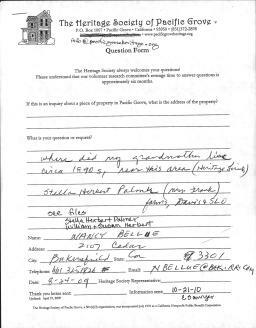 The Heritage Society of Pacific Grove
P.O. Box 1007 • Pacific Grove • California • 93950 • (831) 372-2898
www.pacificgroveheritage.org
info@pacificgroveheritage.org
Question Form
The Heritage Society always welcomes your questions!
Please understand that our volunteer research committee's average time to answer questions is
approximately six months.
If this is an inquiry about a piece of property in Pacific Grove, what is the address of the property?
What is your question or request?
where did my grandmother live
circa 1890s, near this area (Heritage Society)
Stella Herbert Palmer (Mrs. Frank)
Davis & SLO
see files
Stella Herbert Palmer
William & Susan Herbert
Name: NANCY BELLUE
Address: 2107 Cedar
City Bakersfield State Ca 93301
Telephone 661 325 Email NBELLUE@BAK.RR.COM
Date: 8-24-09 Heritage Society Representative:
Thank you letter sent: Information sent: 10-21-10
Updated: April 19, 2009
The Heritage Society of Pacific Grove, a 501(c)(3) organization, was incorporated July 1976 as a California Nonprofit Public Benefit Corporation